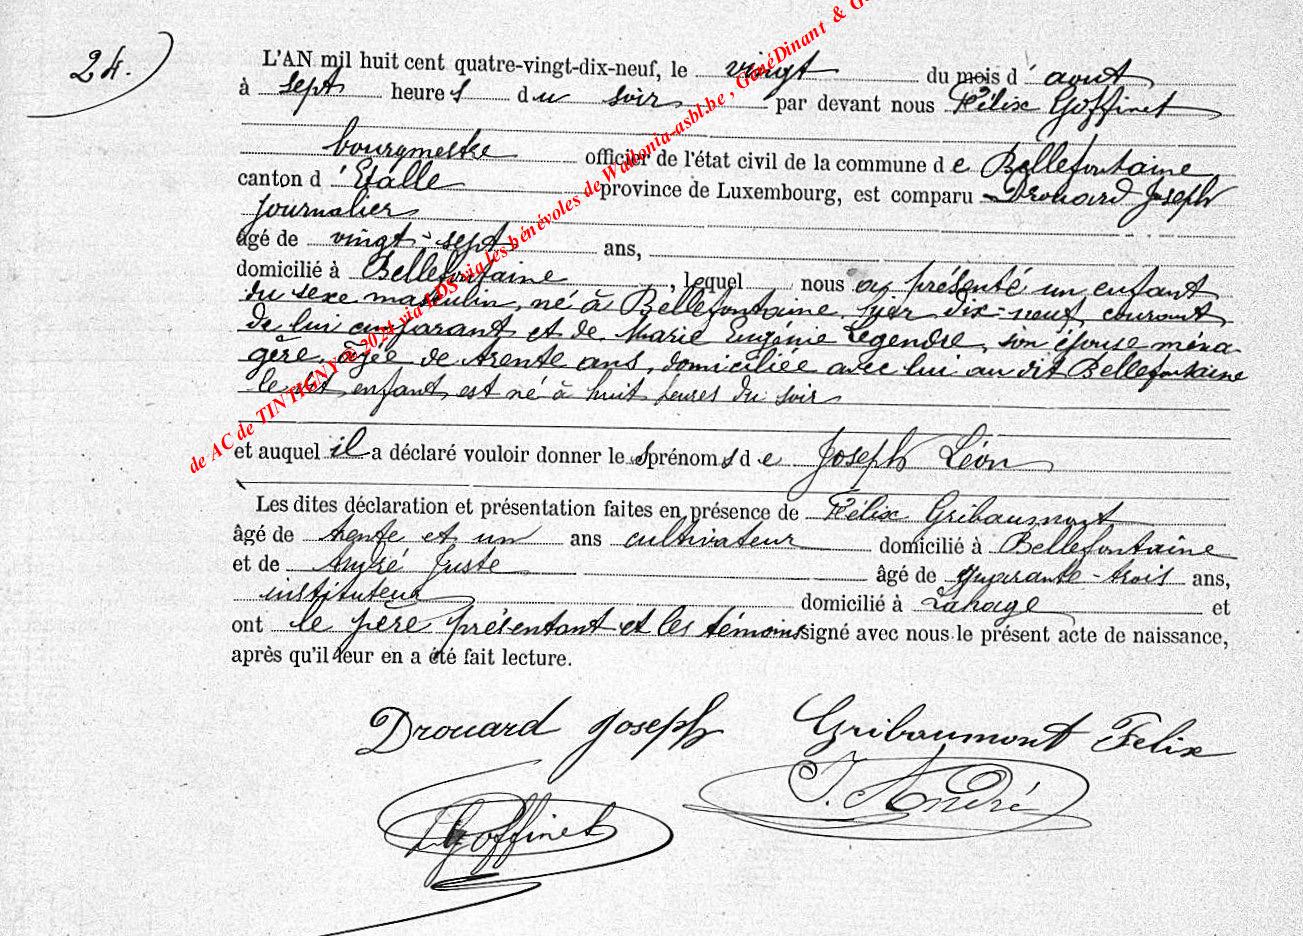 24.
L'AN mil huit cent quatre-vingt-dix-neuf, le vingt du mois d'aout
à sept heures du soir par devant nous Félix Goffinet
bourgmestre officier de l'état civil de la commune de Bellefontaine
canton d'Etalle province de Luxembourg, est comparu Drouard Joseph
Journalier
âgé de vingt-sept ans,
domicilié à Bellefontaine, lequel nous a présenté un enfant
du sexe masculin, né à Bellefontaine, hier dix-neuf courant
de lui comparant et de Marie Eugénie Legendre, son épouse ména-
gère, âgée de trente ans, domiciliée avec lui au dit Bellefontaine
le dit enfant est né à huit heures du soir
et auquel il a déclaré vouloir donner les prénoms de Joseph Léon
Les dites déclaration et présentation faites en présence de Félix Gribaumont
âgé de trente et un ans cultivateur domicilié à Bellefontaine
et de André Juste âgé de quarante-trois ans,
instituteur domicilié à Lahage et
ont le père présentant et les témoins signé avec nous le présent acte de naissance,
après qu'il leur en a été fait lecture.
Drouard Joseph Gribaumont Felix
J. André
Goffinet
de AC de TINTIGNY © 2024 via LDS via les bénévoles de Wallonia-asbl.be, GénéDinant & G